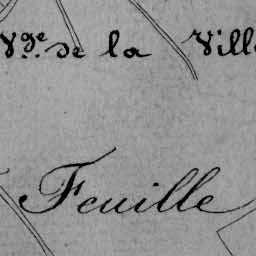 Vge. de la Ville
Feuille